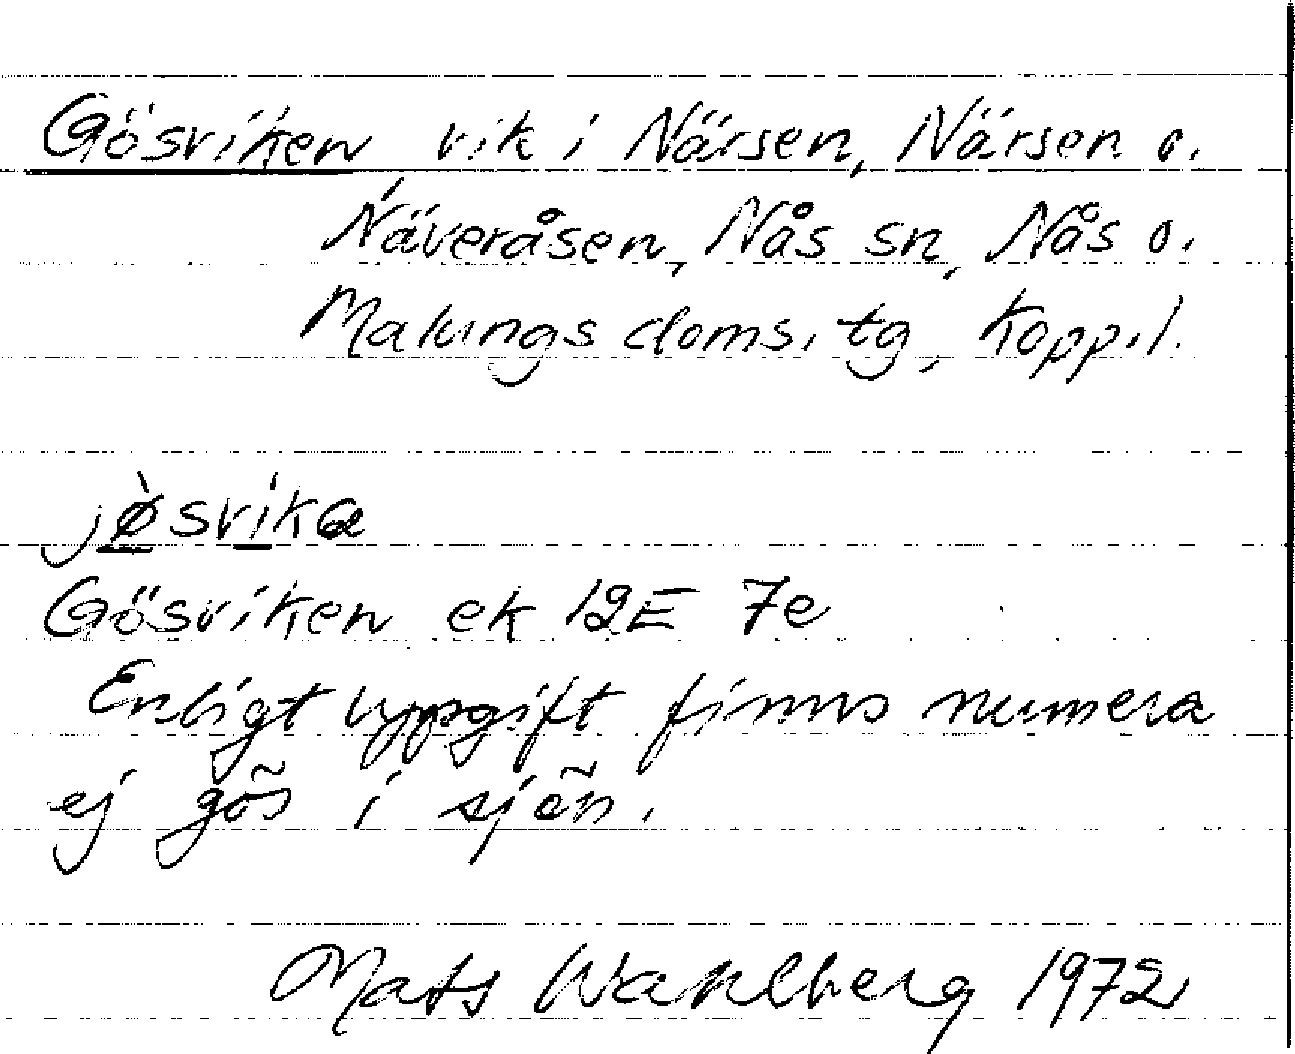 Gösviken vik i Närsen, Närsen o.
Näveråsen, Nås sn, Nås o.
Malungs doms. tg, Kopp. l.
jø̀svika
Gösviken ek 12E 7e
Enligt uppgift finns numera
ej gös i sjön.
Mats Wahlberg 1972